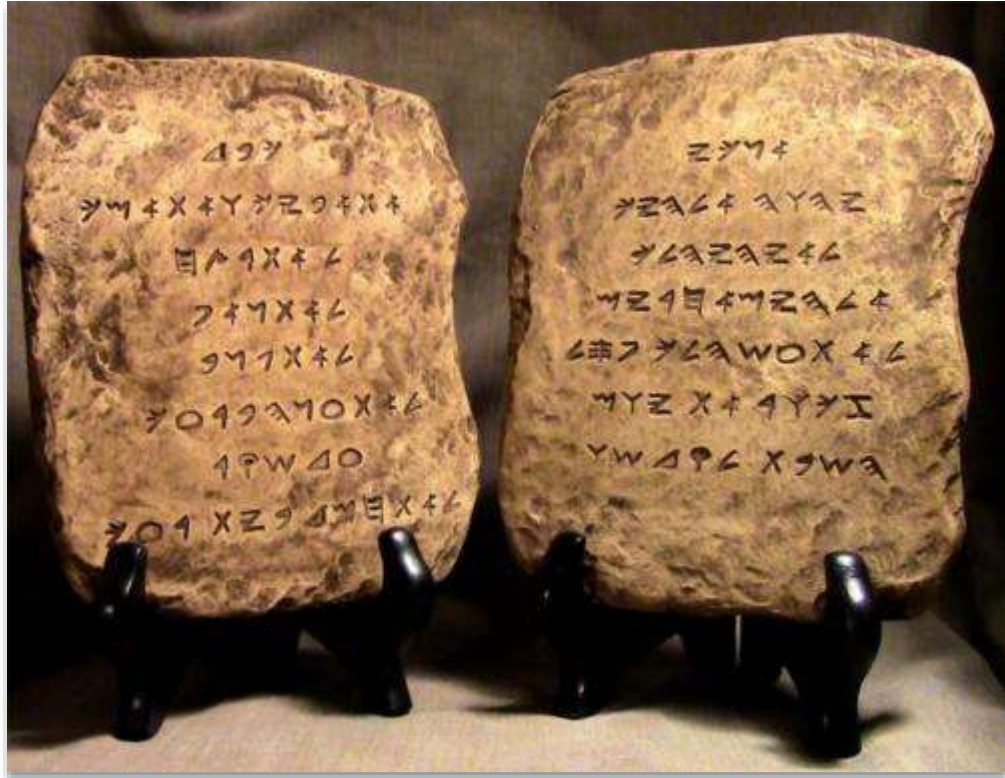 𐤀𐤍𐤊𐤉
𐤉𐤄𐤅𐤄 𐤀𐤋𐤄𐤉𐤊
𐤋𐤀𐤉𐤄𐤉𐤄𐤋𐤊
𐤀𐤋𐤄𐤉𐤌𐤀𐤇𐤓𐤉𐤌
𐤋𐤀 𐤕𐤏𐤔𐤄𐤋𐤊 𐤐𐤎𐤋
𐤆𐤊𐤅𐤓 𐤀𐤕 𐤉𐤅𐤌
𐤄𐤔𐤁𐤕 𐤋𐤒𐤃𐤔𐤅
𐤊𐤁𐤃
𐤀𐤕𐤀𐤁𐤉𐤊𐤅𐤀𐤕𐤀𐤌𐤊
𐤋𐤀𐤕𐤓𐤑𐤇
𐤋𐤀𐤕𐤍𐤀𐤐
𐤋𐤀𐤕𐤂𐤍𐤁
𐤋𐤀𐤕𐤏𐤍𐤄𐤁𐤓𐤏𐤊
𐤏𐤃𐤔𐤒𐤓
𐤋𐤀𐤕𐤇𐤌𐤃 𐤁𐤉𐤕 𐤓𐤏𐤊